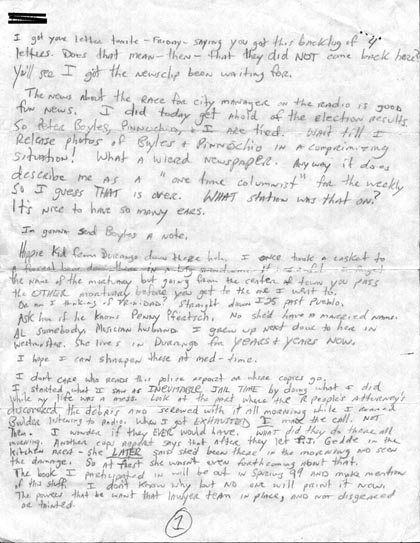 I got your letter tonite - Friday - saying you got this backlog of 4
letters. Does that mean - then - that they did NOT come back here?
You'll see I got the newsclip been waiting for.
The news about the race for city manager in the radio is good
fun news. I did today get ahold of the election results
So Peter Boyles, Pinnochio, & I are tied. Wait till I
Release photos of Boyles & Pinnochio in a comprimizing
situation! What a wierd newspaper. Anyway it does
describe me as a "one time columnist" for the weekly
so I guess THAT is over. WHAT station was that on?
It's nice to have so many ears.
Im gonna send Boyles a note.
Hippie Kid from Durango down there huh. I once took a casket to
a funeral home down there in a
the name of the mortuary but going from the center of town you pass
the OTHER mortuary before you get to the one I went to.
Or am I thinking of Trinidad? Straight down I25 past Pueblo.
Ask him if he knows Penny Pfeotsch. No she'd have a married name.
AL somebody. Musician husband. I grew up next door to her in
Westminster. She lives in Durango for years & years now.
I hope I can sharpen these at med-time.
I don't care who reads this police report or where copies go.
I started what I saw as INEVITABLE JAIL TIME by doing what I did
while my life was a mess. Look at the part where the R people's Attorney's
discovered the debris and screwed with it all morning while I roamed
Boulder listening to radio. When I got EXHAUSTED I made the call. NOT
them. I wonder if they EVER would have. What did they do there all
morning. Another cops report says that after they let P.I. Gedde in the
kitchen area - she LATER said she'd been there in the morning and seen
the damage. So at first she wasn't even forthcoming about that.
The book I participated in will be out in Spring 99 and make mention
of this stuff. I don't know why but NO one will print it now.
The powers that be want that lawyer team in place, and not disgraced
or tainted.
1